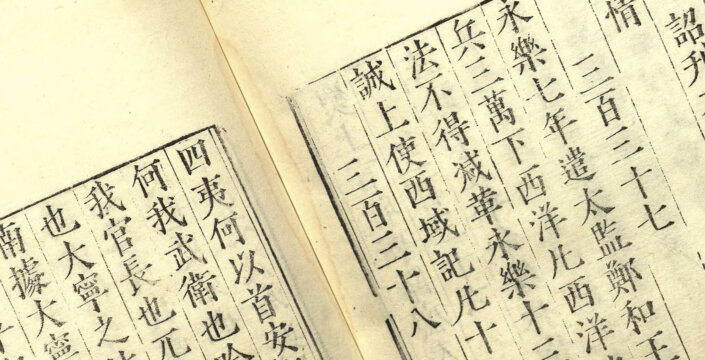 詔刋
情
三百三十七
永樂七年遣太監鄭和王
兵三萬下西洋凢西洋
法不得減革永樂十三
誠上使西域記凢十
三百三十八
四夷何以首安
何我武衛也
我官長也元
也大寧之
南據大寧